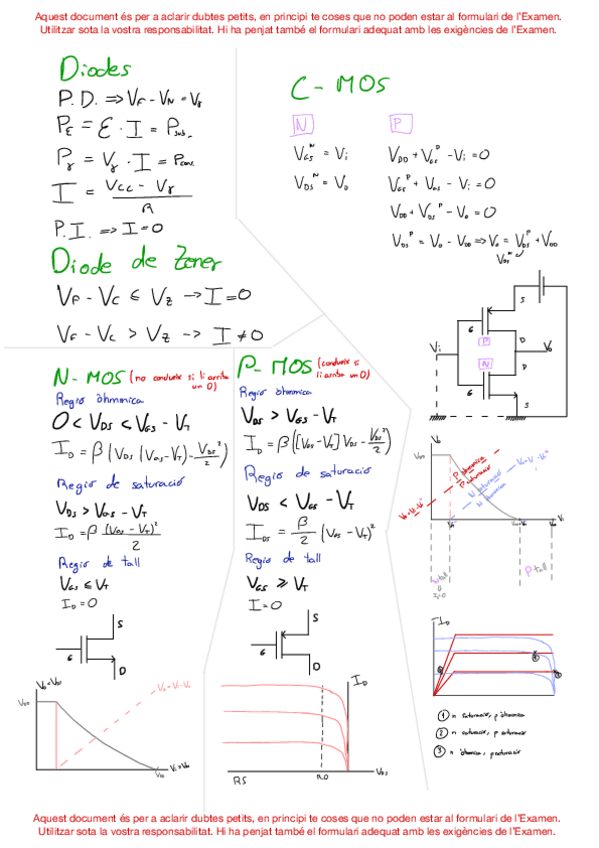 Aquest document és per a aclarir dubtes petits, en principi te coses que no poden estar al formulari de l'Examen.
Utilitzar sota la vostra responsabilitat. Hi ha penjat també el formulari adequat amb les exigències de l'Examen.
Diodes
P.D. => VF - VN = Vγ
PE = ε · I = Psub.
Pγ = Vγ · I = Pcons.
I = (Vcc - Vγ) / R
P.I. => I = 0
Diode de Zener
VP - VC ≤ VZ -> I = 0
VF - VC > VZ -> I ≠ 0
C-MOS
N
P
VGS^N = Vi
VDS^N = Vo
VDD + VGS^P - Vi = 0
VDD + VDS^P - Vo = 0
VDS^P = Vo - VDD => Vo = VDS^P + VDD
VDS^N
S
G
P
D
Vi
Vo
N
D
G
S
N-MOS (no condueix si li arriba un 0)
Regió òhmmica
0 < VDS < VGS - VT
ID = β (VDS (VGS - VT) - VDS²/2)
Regió de saturació
VDS > VGS - VT
ID = β (VGS - VT)² / 2
Regió de tall
VGS ≤ VT
ID = 0
S
G
D
Vo = VDS
VDD
Vi = VGS
P-MOS (condueix si li arriba un 0)
Regió òhmmica
VDS > VGS - VT
ID = β ([VGS - VT] VDS - VDS²/2)
Regió de saturació
VDS < VGS - VT
IDS = β/2 (VGS - VT)²
Regió de tall
VGS ≥ VT
I = 0
S
G
D
ID
VDS
RS
RO
Vo
P òhmica
P saturació
N saturació
N òhmica
Vi
N tall
P tall
ID
1 n saturació, p òhmica
2 n saturació, p saturació
3 n òhmica, p saturació
Aquest document és per a aclarir dubtes petits, en principi te coses que no poden estar al formulari de l'Examen.
Utilitzar sota la vostra responsabilitat. Hi ha penjat també el formulari adequat amb les exigències de l'Examen.